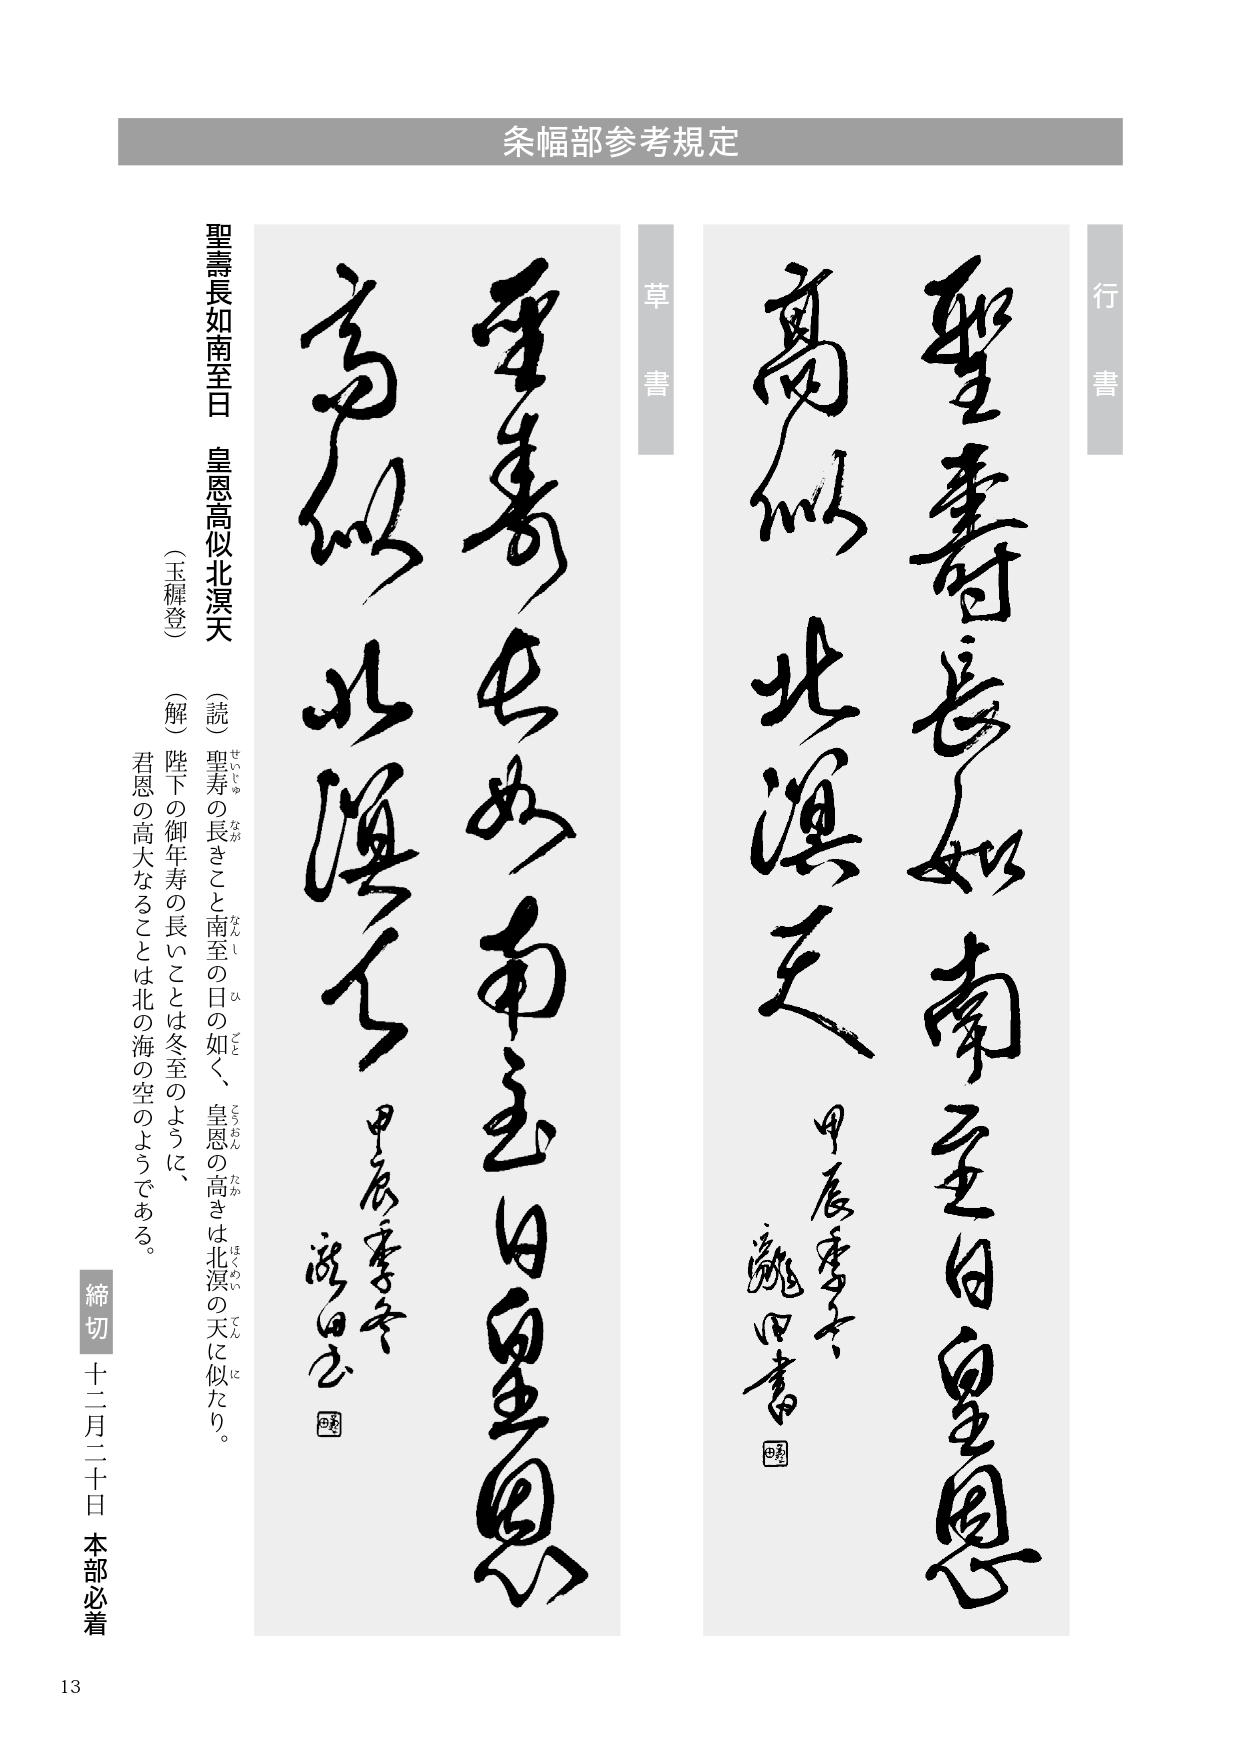 条幅部参考規定
行書
聖壽長如南至日皇恩
高似北溟天
甲辰季冬
瀧田書
草書
聖壽長如南至日皇恩
高似北溟天
甲辰季冬
瀧田書
聖壽長如南至日 皇恩高似北溟天
（玉穉登）
（読）聖寿の長きこと南至の日の如く、皇恩の高きは北溟の天に似たり。
せいじゅ なが なんし ひ ごと こうおん たか ほくめい てん に
（解）陛下の御年寿の長いことは冬至のように、
君恩の高大なることは北の海の空のようである。
締切 十二月二十日 本部必着
13